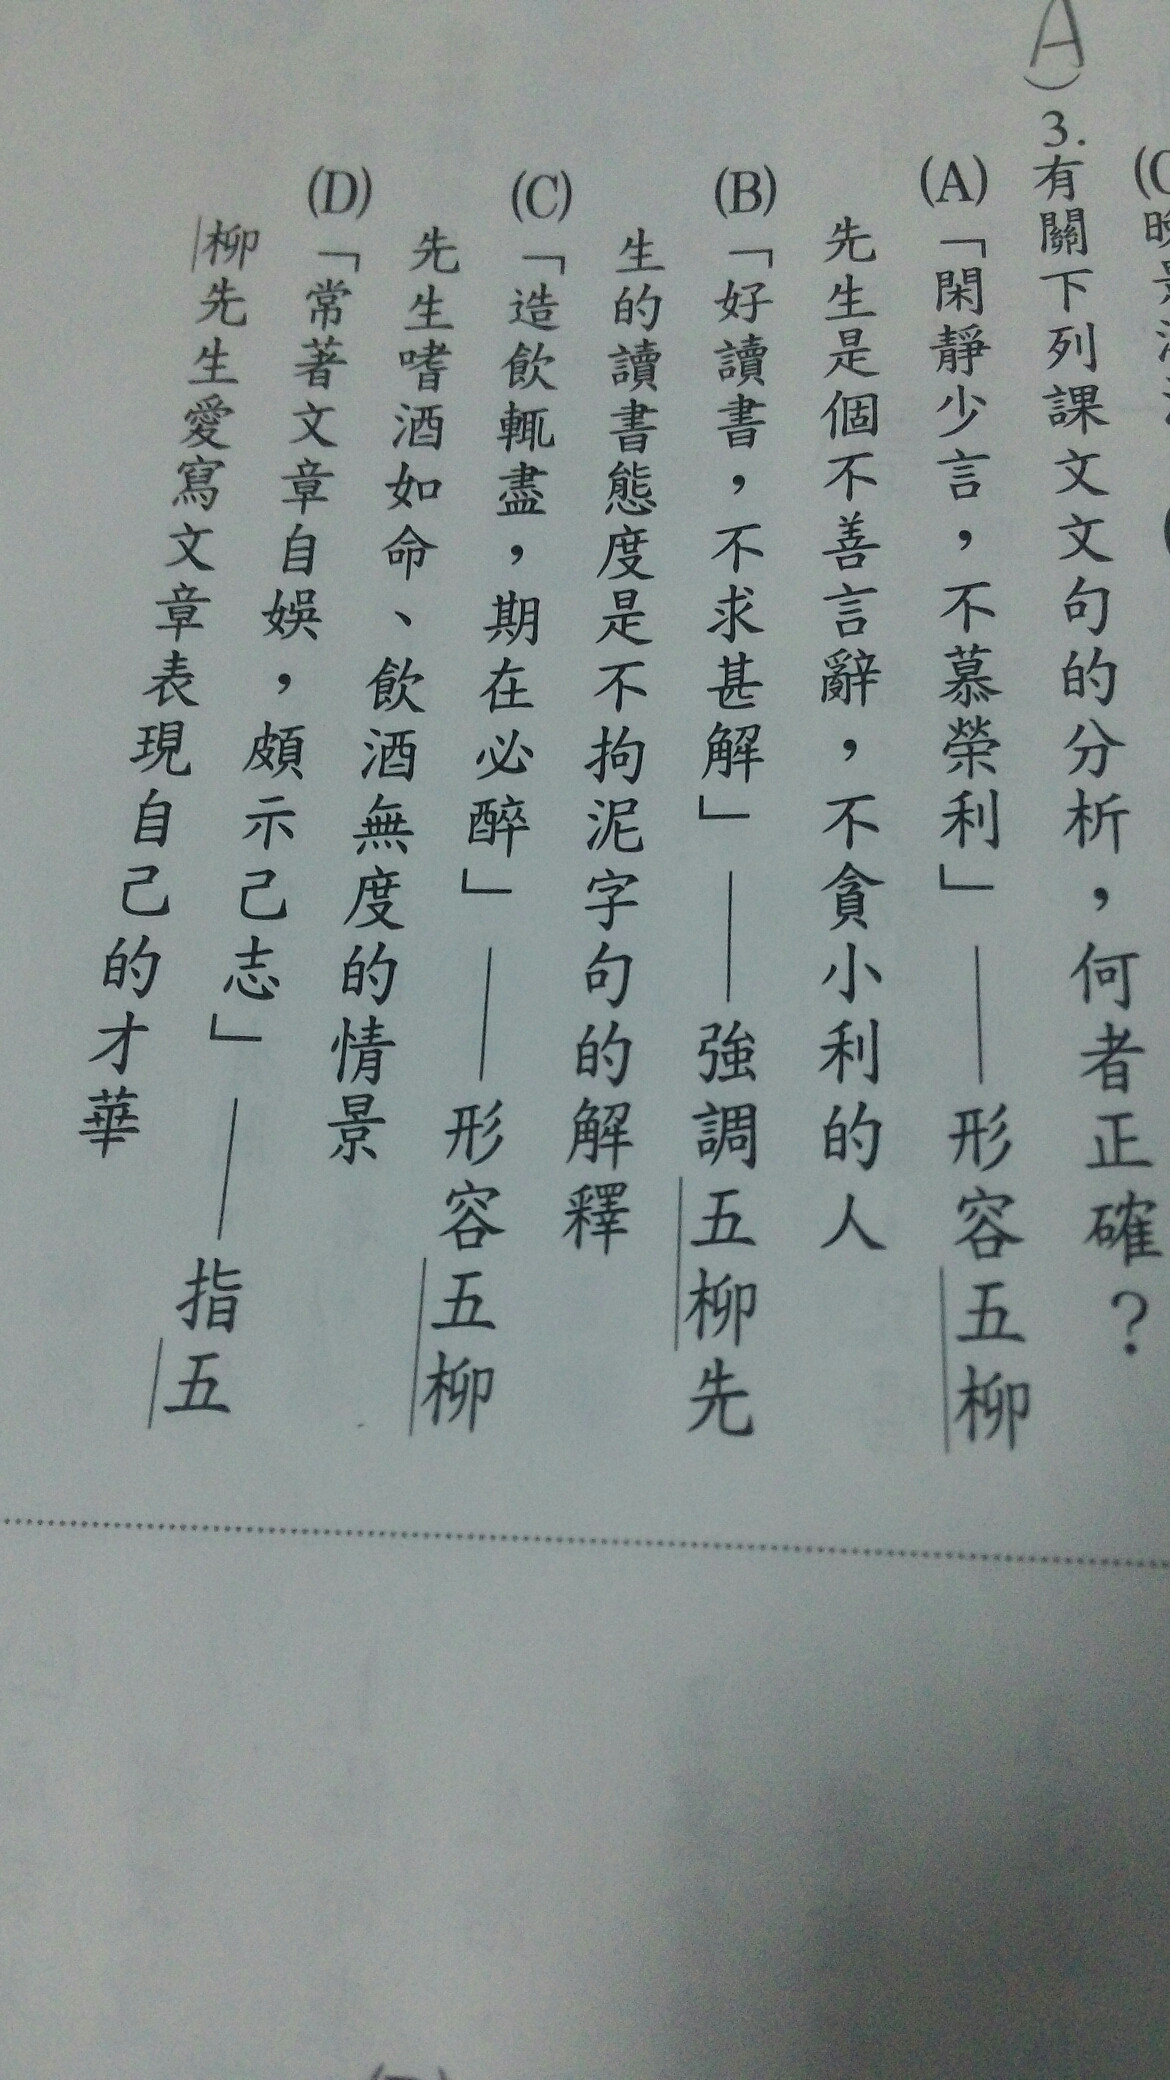 A)3.有關下列課文文句的分析，何者正確？
(A)「閑靜少言，不慕榮利」——形容五柳
先生是個不善言辭，不貪小利的人
(B)「好讀書，不求甚解」——強調五柳先
生的讀書態度是不拘泥字句的解釋
(C)「造飲輒盡，期在必醉」——形容五柳
先生嗜酒如命、飲酒無度的情景
(D)「常著文章自娛，頗示己志」——指五
柳先生愛寫文章表現自己的才華